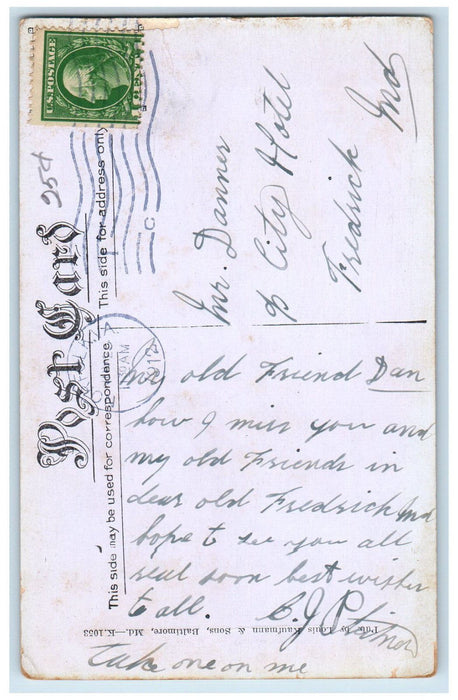 U.S. POSTAGE
1 CENT 1
25¢
Post Card
This side may be used for correspondence
This side for address only
AM
12
C
Mr. Danner
City Hotel
Fredrick
Md
my old Friend Dan
how I miss you and
my old Friends in
dear old Fredrich Md
hope to see you all
real soon best wishes
to all. C. J. P
take one on me
Pub. by Louis Kaufmann & Sons, Baltimore, Md.—K.1053